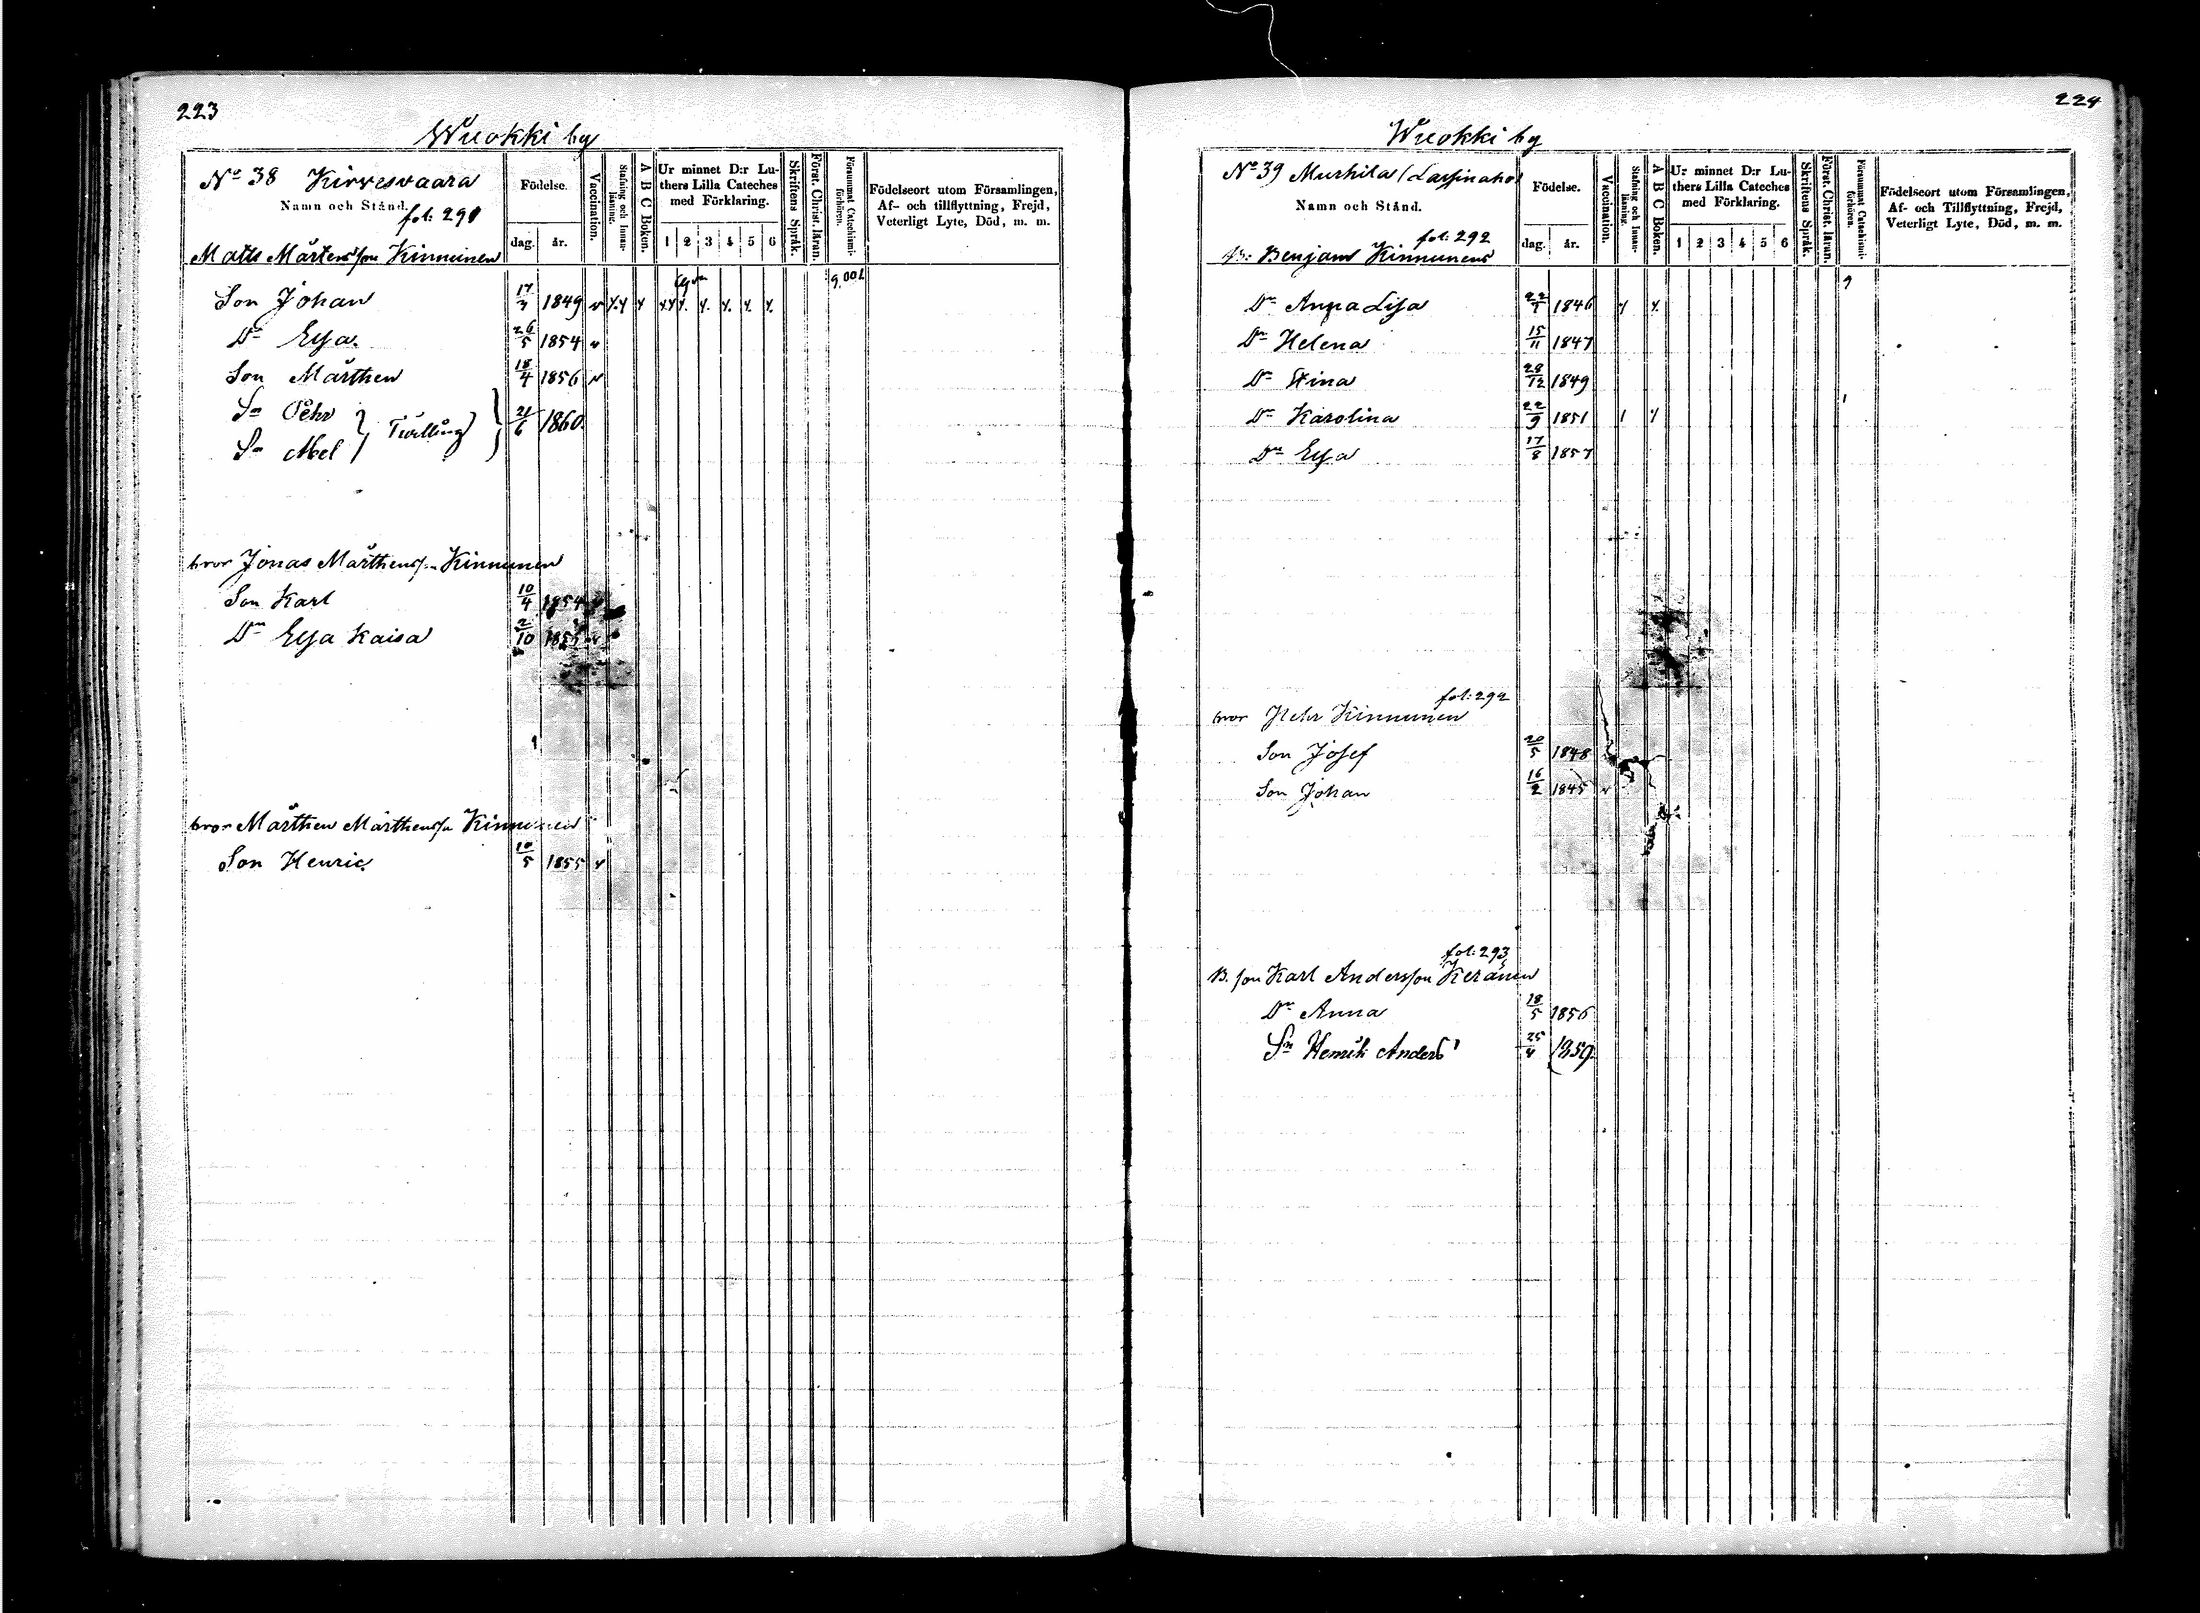 223
Wuokki by
No 38 Kirvesvaara
Namn och Stånd.
fol: 291
Födelse.
dag. år.
Vaccination.
Stafning och Innanläsning.
A B C Boken.
Ur minnet D:r Luthers Lilla Cateches med Förklaring.
1 2 3 4 5 6
Skriftens Språk.
Förat. Christ. läran.
Försummat Catechismiförhören.
Födelseort utom Församlingen,
Af- och tillflyttning, Frejd,
Veterligt Lyte, Död, m. m.
Matts Mårtensson Kinnunen
Son Johan 17/3 1849
Dr Elsa 26/5 1854
Son Mårthen 18/4 1856
Sn Pehr } Twilling } 21/6 1860
Sn Abel
bror Jonas Mårthenss. Kinnunen
Son Karl 10/4 1854
Dr Elsa Kaisa 2/10
bror Mårthen Mårthenss Kinnunen
Son Henric 10/5 1855
224
Wuokki by
No 39 Murhila (Lassinaho)
Namn och Stånd.
fol: 292
Födelse.
dag. år.
Vaccination.
Stafning och Innanläsning.
A B C Boken.
Ur minnet D:r Luthers Lilla Cateches med Förklaring.
1 2 3 4 5 6
Skriftens Språk.
Förat. Christ. läran.
Försummat Catechismiförhören.
Födelseort utom Församlingen,
Af- och Tillflyttning, Frejd,
Veterligt Lyte, Död, m. m.
Benjam Kinnunens
Dr Anna Lisa 1846
Dr Helena 15/11 1847
Dr Stina 28/12 1849
Dr Karolina 22/9 1851
Dr Elsa 17/8 1857
fol: 292
bror Pehr Kinnunen
Son Josef 20/5 1848
Son Johan 16/2 1845
fol: 293
B. son Karl Andersson Keränen
Dr Anna 18/5 1856
Sn Henrik Anders 25/4 1859